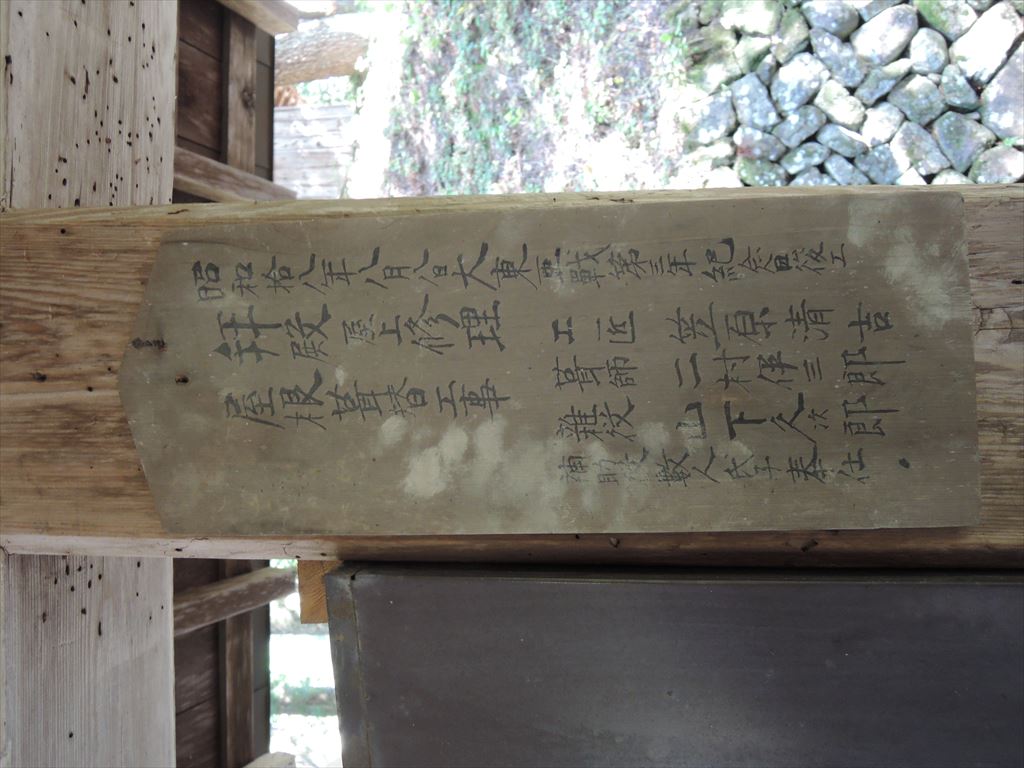 昭和拾八年八月八日大東亞戰第三年紀念日竣工
拝殿屋上修理
屋根葺替工事
工匠 笠原清吉
葺師 二村伊三郎
雜役 山下久次郎
補助役數人氏子奉仕